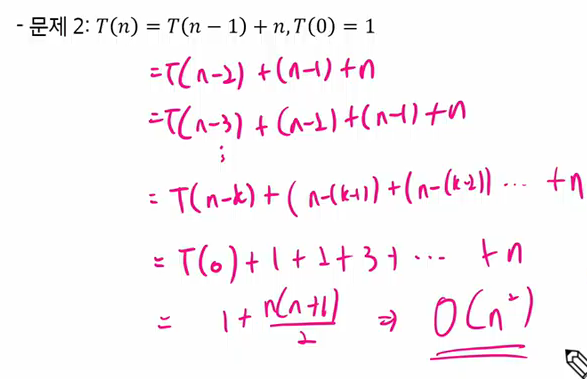 - 문제 2: T(n) = T(n − 1) + n, T(0) = 1
= T(n-2) + (n-1) + n
= T(n-3) + (n-2) + (n-1) + n
⋮
= T(n-k) + (n-(k-1)) + (n-(k-2)) ⋯ + n
= T(0) + 1 + 2 + 3 + ⋯ + n
= 1 + n(n+1)/2 ⇒ O(n²)